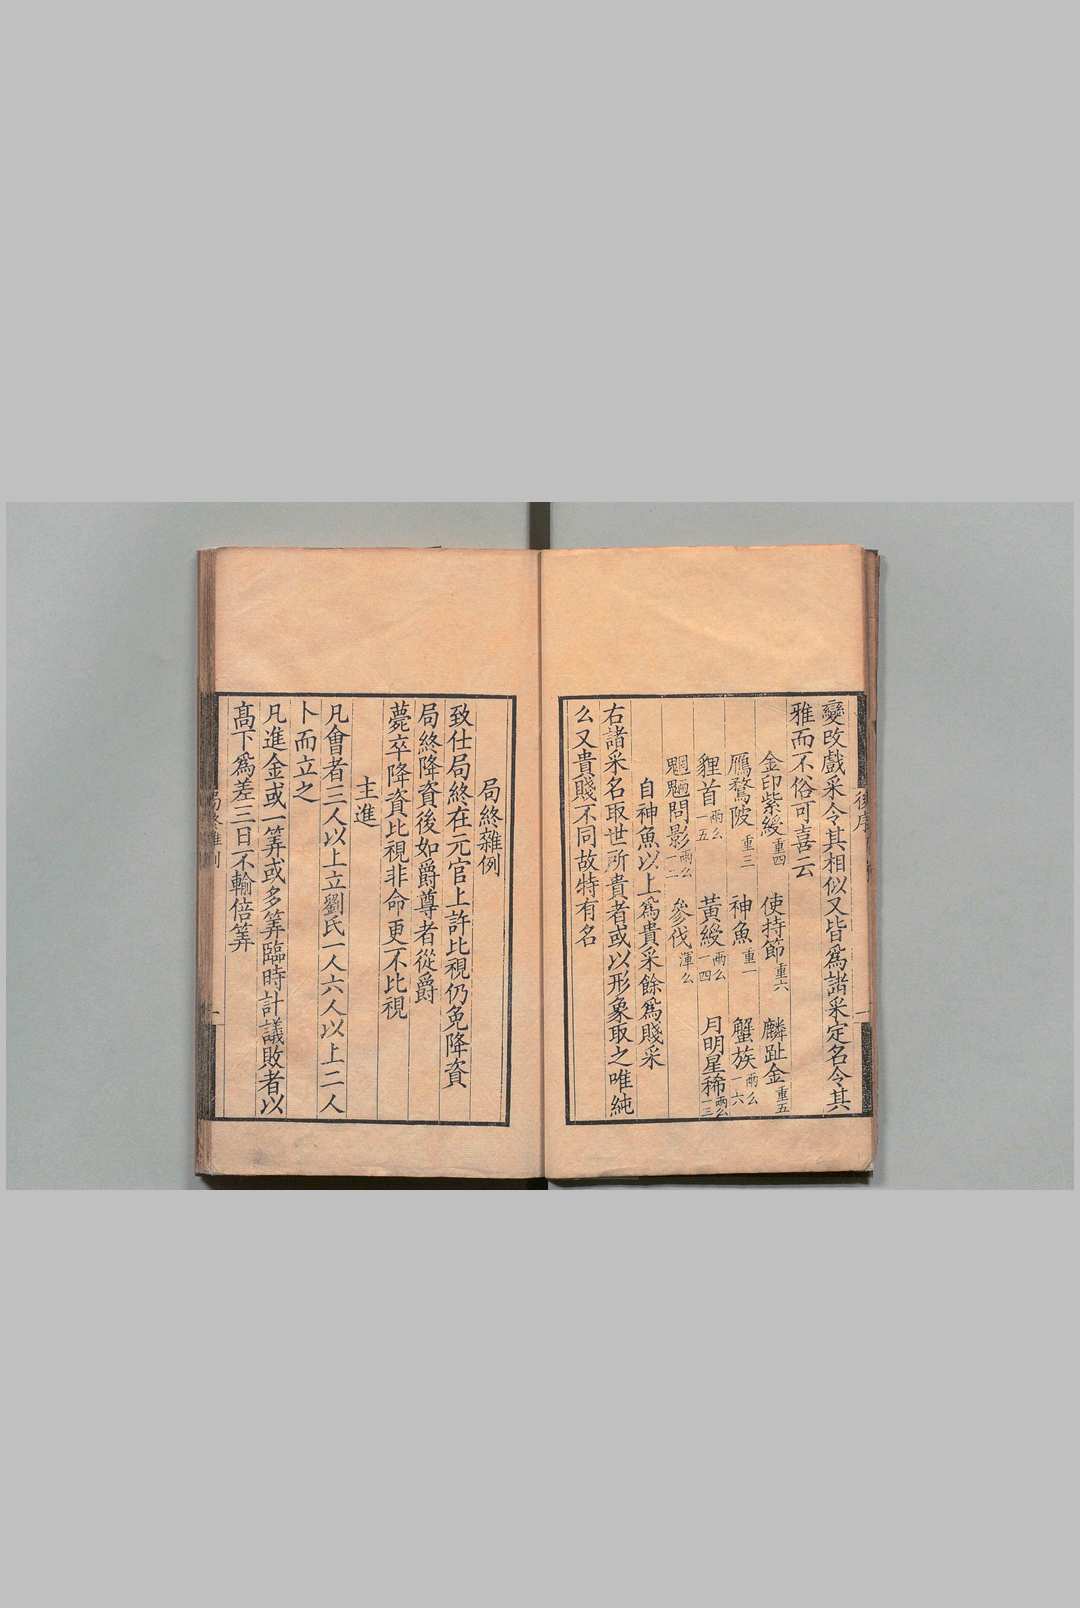 變改戲采令其相似又皆爲諸采定名令其
雅而不俗可喜云
金印紫綬重四 使持節重六 麟趾金重五
鴈鶩陂重三 神魚重一 蟹族兩么一六
貍首兩么一五 黃綬兩么一四 月明星稀兩么一三
魍魎問影兩么一二 參伐渾么
自神魚以上爲貴采餘爲賤采
右諸采名取世所貴者或以形象取之唯純
么又貴賤不同故特有名
後序
局終雜例
致仕局終在元官上許比視仍免降資
局終降資後如爵尊者從爵
薨卒降資比視非命更不比視
主進
凡會者三人以上立劉氏一人六人以上二人
卜而立之
凡進金或一筭或多筭臨時計議敗者以
高下爲差三日不輸倍筭
局終雜例
一